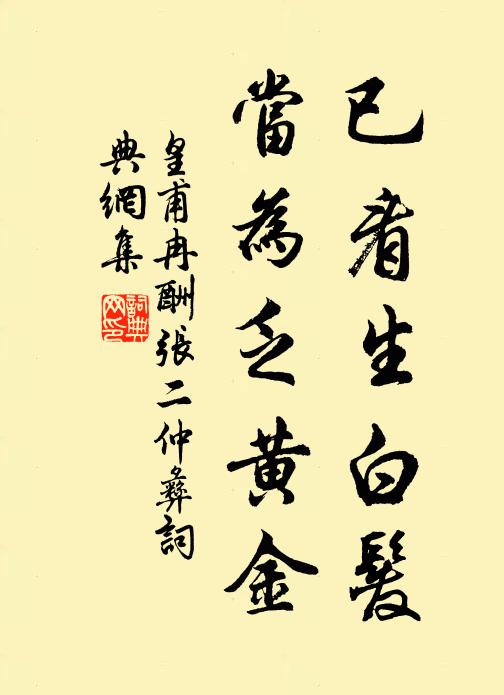 已看生白髮
當為乏黃金
皇甫冉酬張二仲彝詞
典網集
詞典網印